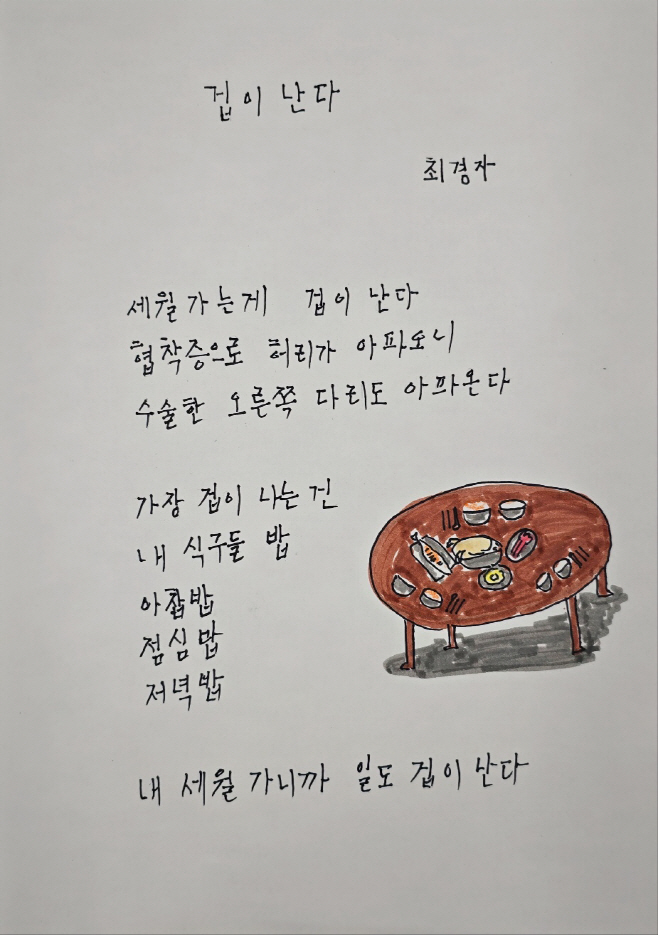 겁이 난다
최경자
세월 가는게 겁이 난다
협착증으로 허리가 아파오니
수술한 오른쪽 다리도 아파온다
가장 겁이 나는 건
내 식구들 밥
아침밥
점심밥
저녁밥
내 세월 가니까 일도 겁이 난다